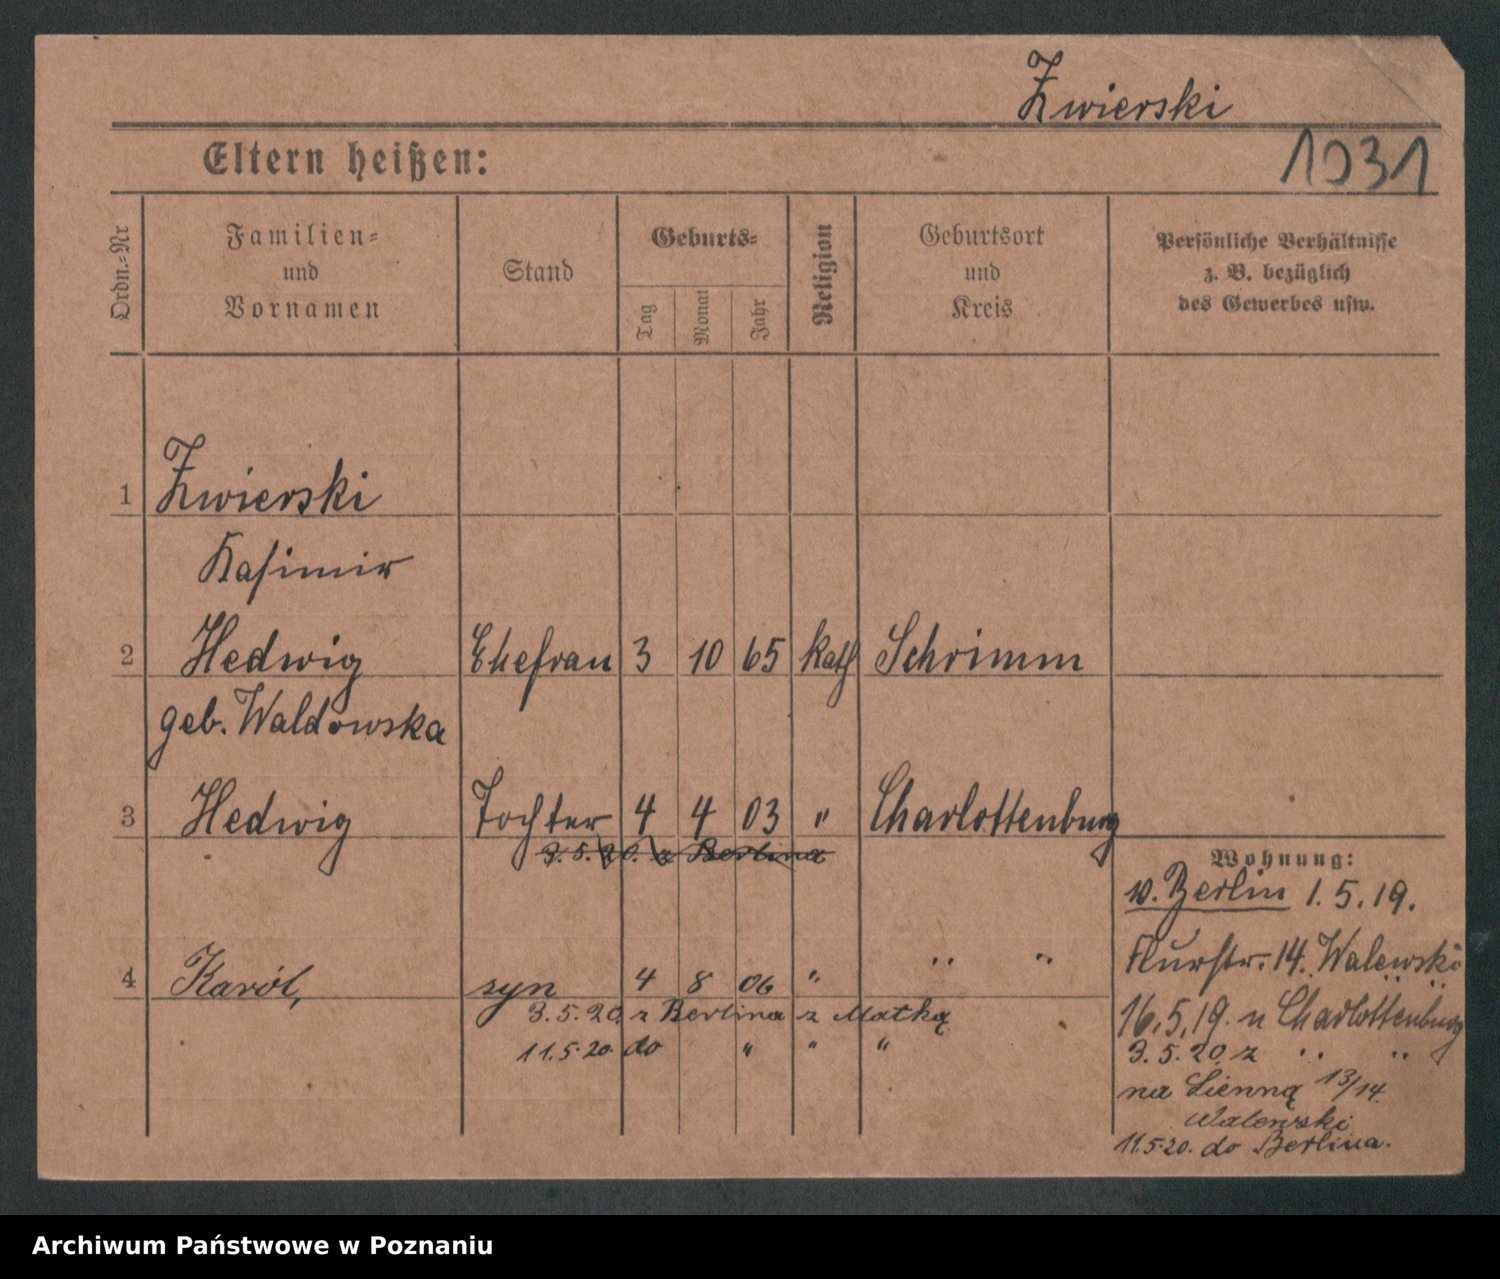 Zwierski
Eltern heißen:
1031
Ordn.-Nr
Familien-
und
Vornamen
Stand
Geburts-
Tag
Monat
Jahr
Religion
Geburtsort
und
Kreis
Persönliche Verhältnisse
z. B. bezüglich
des Gewerbes usw.
1 Zwierski
Kasimir
2 Hedwig Ehefrau 3 10 65 kath Schrimm
geb. Waldowska
3 Hedwig Tochter 4 4 03 " Charlottenburg
3.5.20. z Berlina
Wohnung:
v. Berlin 1.5.19.
Flurstr. 14. Walewski
4 Karól, syn 4 8 06 " " "
16.5.19. n Charlottenburg
3.5.20 z Berlina z Matką
11.5.20. do " " "
3.5.20 z " "
na Sienną 13/14.
Walewski
11.5.20. do Berlina.
Archiwum Państwowe w Poznaniu